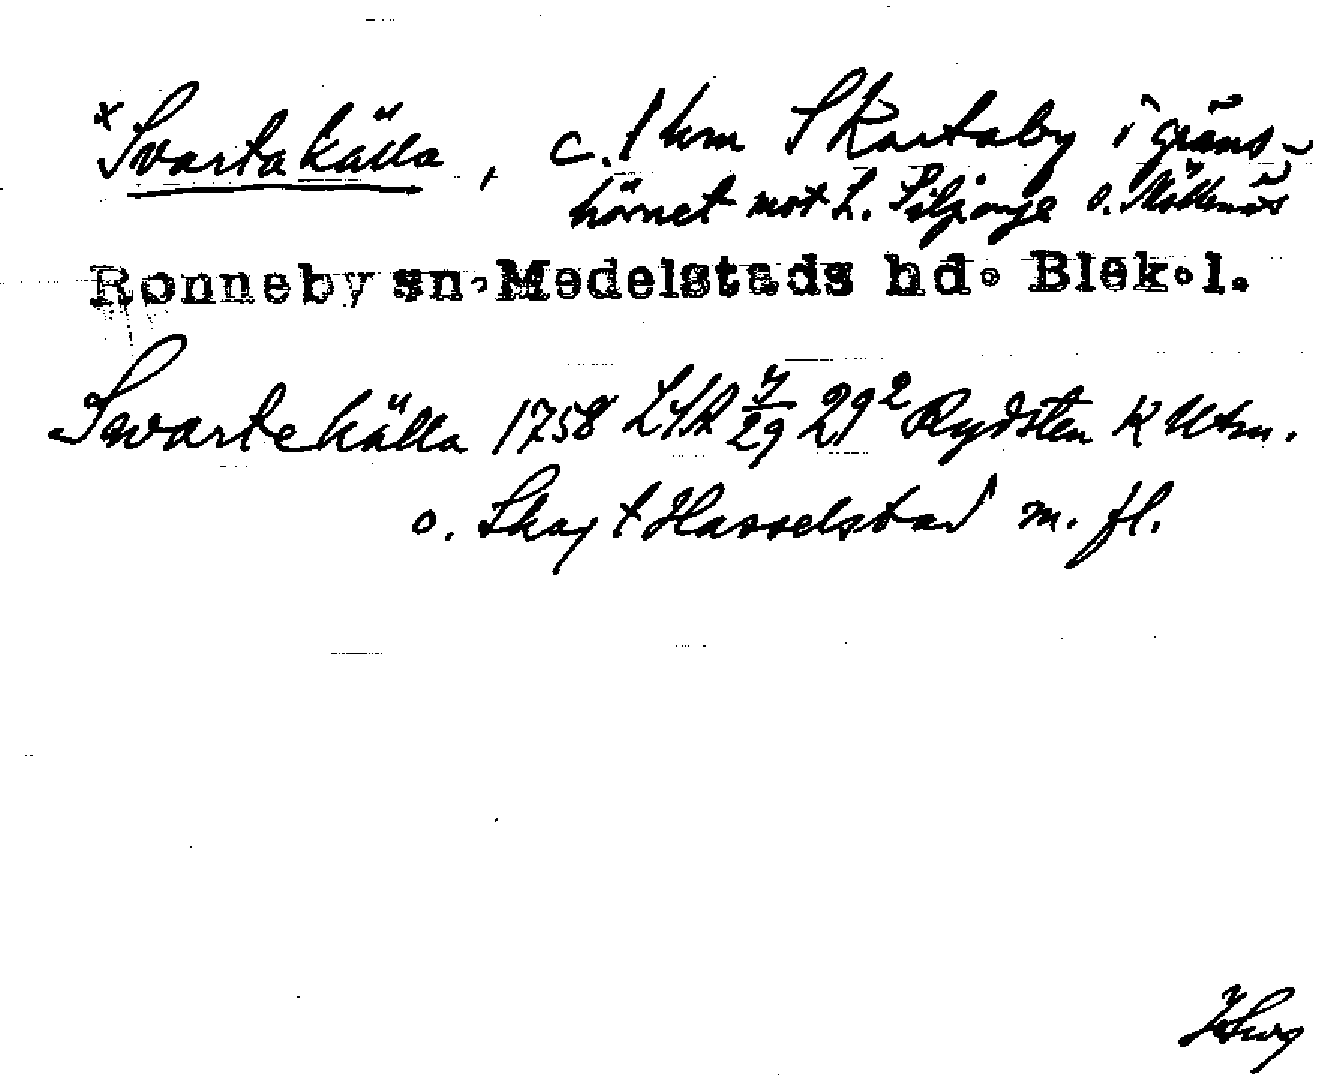 *Svartakälla, c. 1 km S Kartaby i gräns-
hörnet mot L. Siljouje o. Möllenäs
Ronneby sn. Medelstads hd. Blek.l.
Svartekälla 1758 LSA 29² Rydsten K Utm.
o. Skog t Hasselstad m. fl.